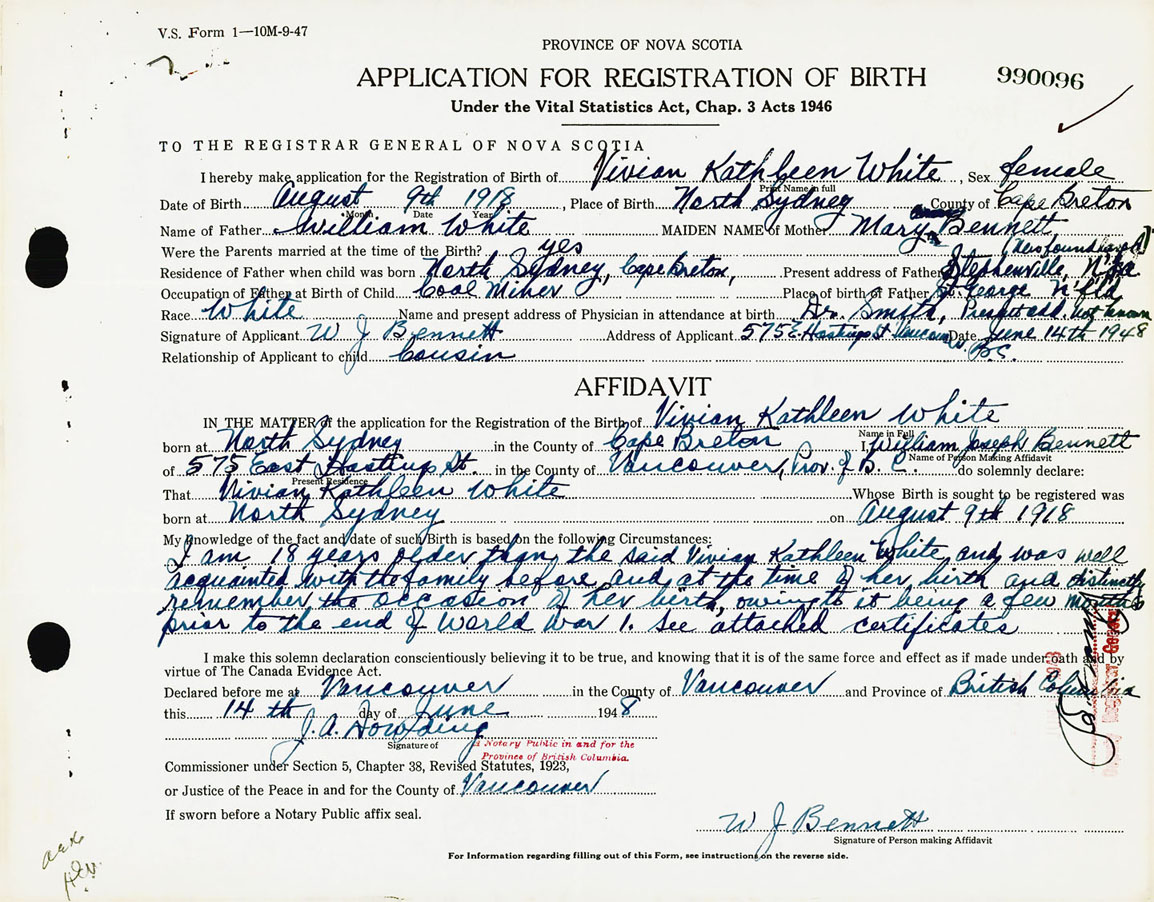 V.S. Form 1—10M-9-47
PROVINCE OF NOVA SCOTIA
APPLICATION FOR REGISTRATION OF BIRTH 990096
Under the Vital Statistics Act, Chap. 3 Acts 1946
TO THE REGISTRAR GENERAL OF NOVA SCOTIA
I hereby make application for the Registration of Birth of Vivian Kathleen White, Sex female
Print Name in full
Date of Birth August 9th 1918, Place of Birth North Sydney County of Cape Breton
Month Date Year
Name of Father William White MAIDEN NAME of Mother Mary Bennett
Were the Parents married at the time of the Birth? yes (Newfoundland)
Residence of Father when child was born North Sydney, Cape Breton, Present address of Father Stephenville, Nfld
Occupation of Father at Birth of Child Coal Miner Place of birth of Father St. George Nfld
Race White Name and present address of Physician in attendance at birth Dr. Smith, Present add. not known
Signature of Applicant W J Bennett Address of Applicant 575 E. Hastings St Vancouver Date June 14th 1948
B.C.
Relationship of Applicant to child Cousin
AFFIDAVIT
IN THE MATTER of the application for the Registration of the Birth of Vivian Kathleen White
Name in Full
born at North Sydney in the County of Cape Breton I, William Joseph Bennett
Name of Person Making Affidavit
of 575 East Hastings St. in the County of Vancouver, Prov. of B.C. do solemnly declare:
Present Residence
That Vivian Kathleen White Whose Birth is sought to be registered was
born at North Sydney on August 9th 1918
My knowledge of the fact and date of such Birth is based on the following Circumstances:
I am 18 years older than the said Vivian Kathleen White and was well
acquainted with the family before and at the time of her birth and distinctly
remember the occasion of her birth, owing to it being a few months
prior to the end of World War 1. See attached certificates
I make this solemn declaration conscientiously believing it to be true, and knowing that it is of the same force and effect as if made under oath and by
virtue of The Canada Evidence Act.
Declared before me at Vancouver in the County of Vancouver and Province of British Columbia
this 14th day of June 1948
J. A. Dowding
Signature of
A Notary Public in and for the
Province of British Columbia.
Commissioner under Section 5, Chapter 38, Revised Statutes, 1923,
or Justice of the Peace in and for the County of Vancouver
If sworn before a Notary Public affix seal.
W J Bennett
Signature of Person making Affidavit
For Information regarding filling out of this Form, see instructions on the reverse side.